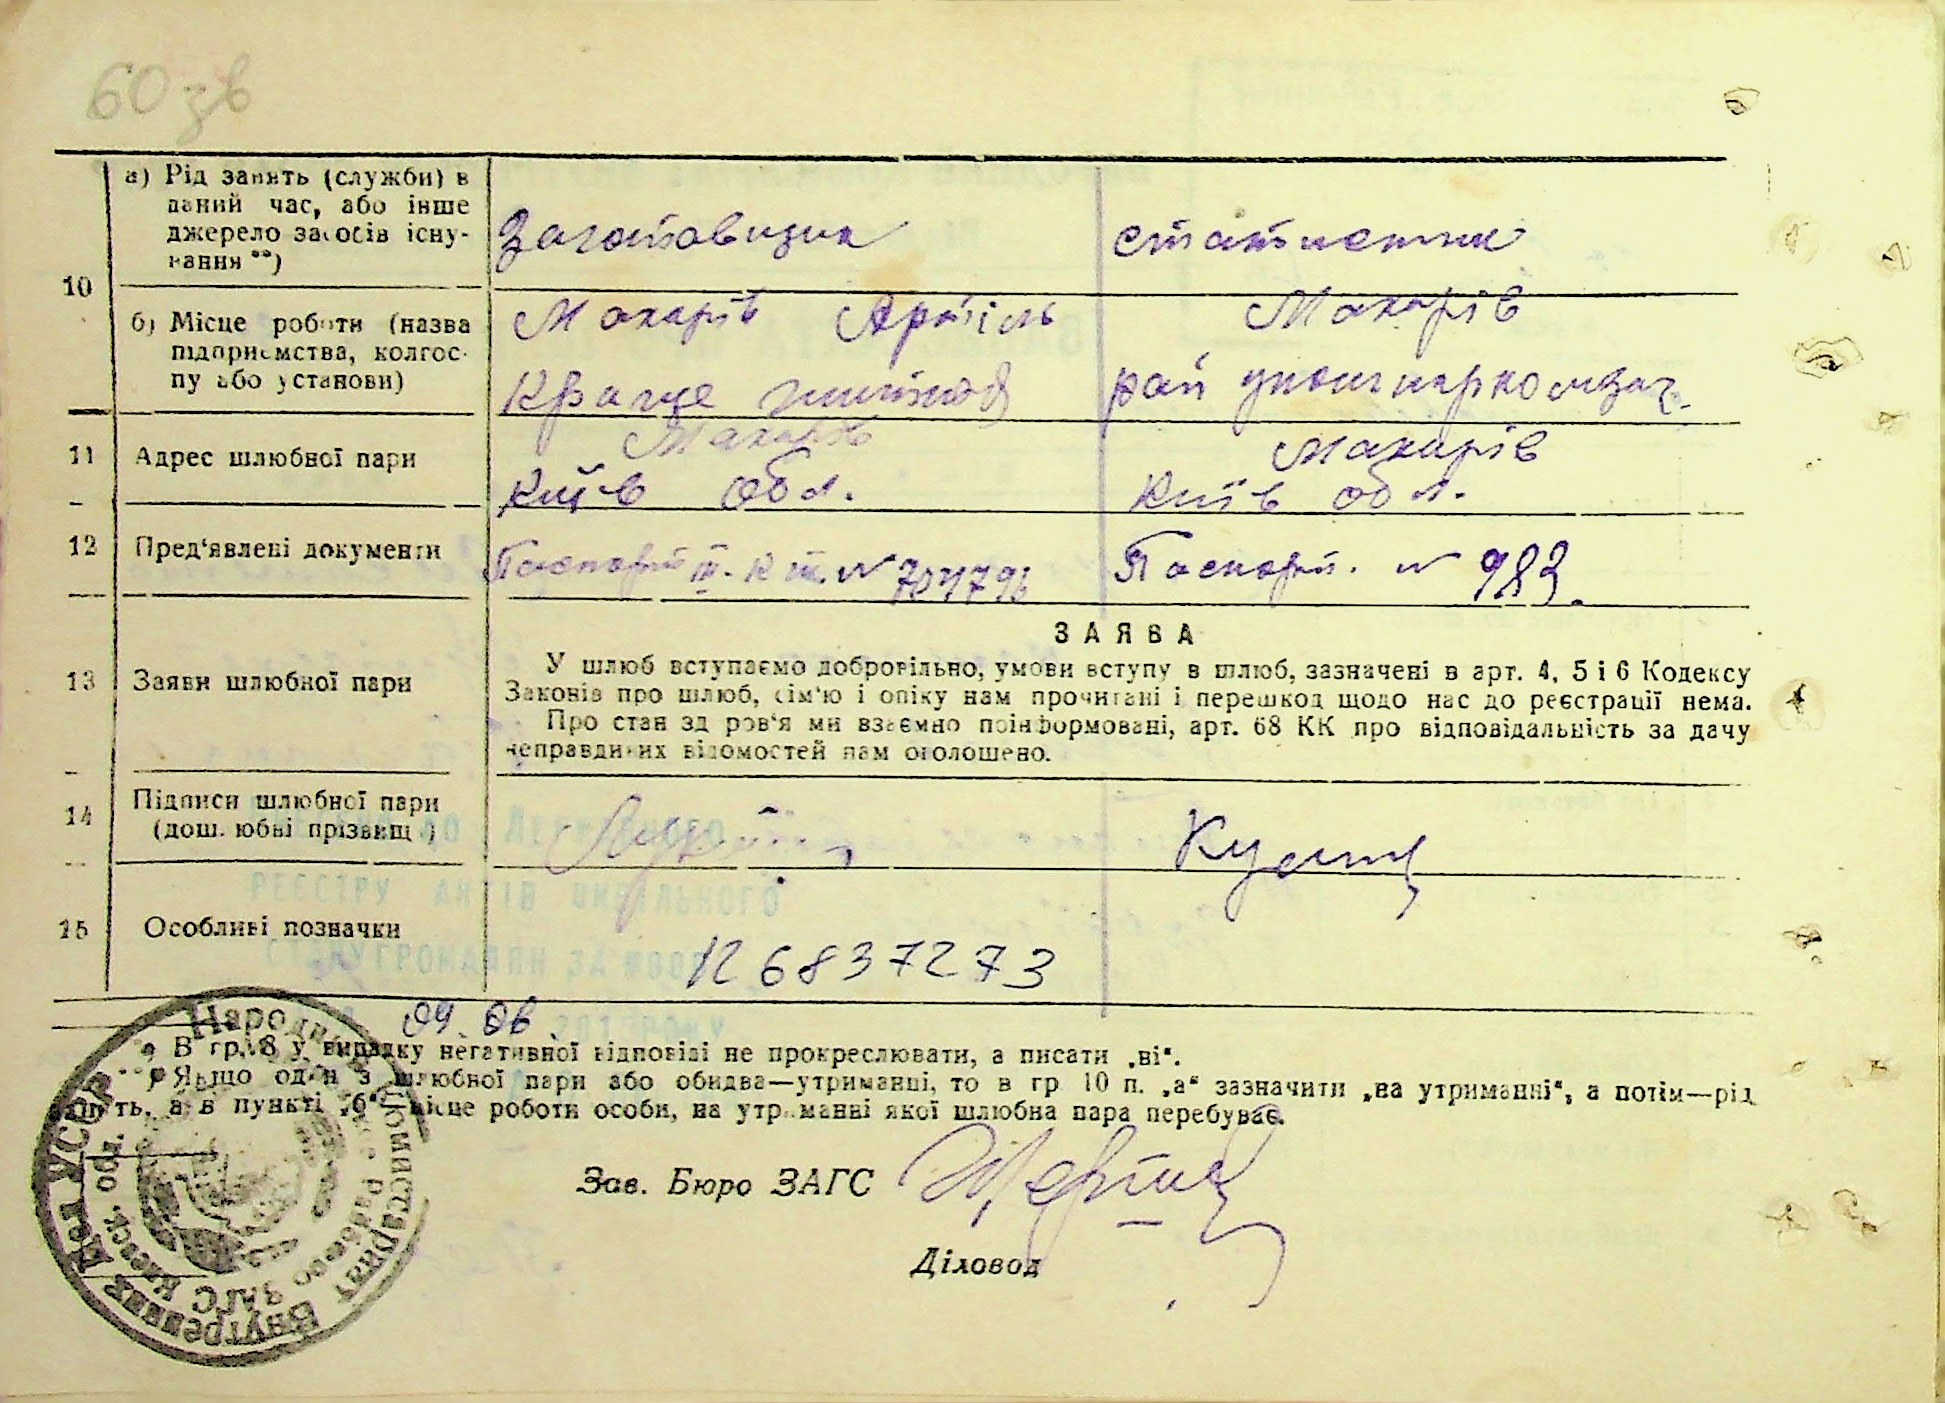 60 зв
10
а) Рід занять (служби) в
даний час, або інше
джерело засобів існу-
вання **)
Заготовщик
статистик
б) Місце роботи (назва
підприємства, колгос-
пу або установи)
Макарів Артіль
Краще
Макарів
рай
11
Адрес шлюбної пари
Макарів
Київ обл.
Макарів
Київ обл.
12
Пред'явлені документи
Паспорт № 704796
Паспорт. № 983.
13
Заяви шлюбної пари
ЗАЯВА
У шлюб вступаємо добровільно, умови вступу в шлюб, зазначені в арт. 4, 5 і 6 Кодексу
Законів про шлюб, сім'ю і опіку нам прочитані і перешкод щодо нас до реєстрації нема.
Про стан здоров'я ми взаємно поінформовані, арт. 68 КК про відповідальність за дачу
неправдивих відомостей нам оголошено.
14
Підписи шлюбної пари
(дошлюбні прізвища)
15
Особливі позначки
РЕЄСТРУ АКТІВ ЦИВІЛЬНОГО
СТАНУ ГРОМАДЯН ЗА
126837273
09.06.
*) В гр. 8 у випадку негативної відповіді не прокреслювати, а писати „ні“.
**) Якщо один з шлюбної пари або обидва—утриманці, то в гр 10 п. „а“ зазначити „на утриманні“, а потім—рід
занять, а в пункті „б“ місце роботи особи, на утриманні якої шлюбна пара перебуває.
Народный Комиссариат Внутренних Дел УССР
ЗАГС Киевск. Обл.
Зав. Бюро ЗАГС
Діловод